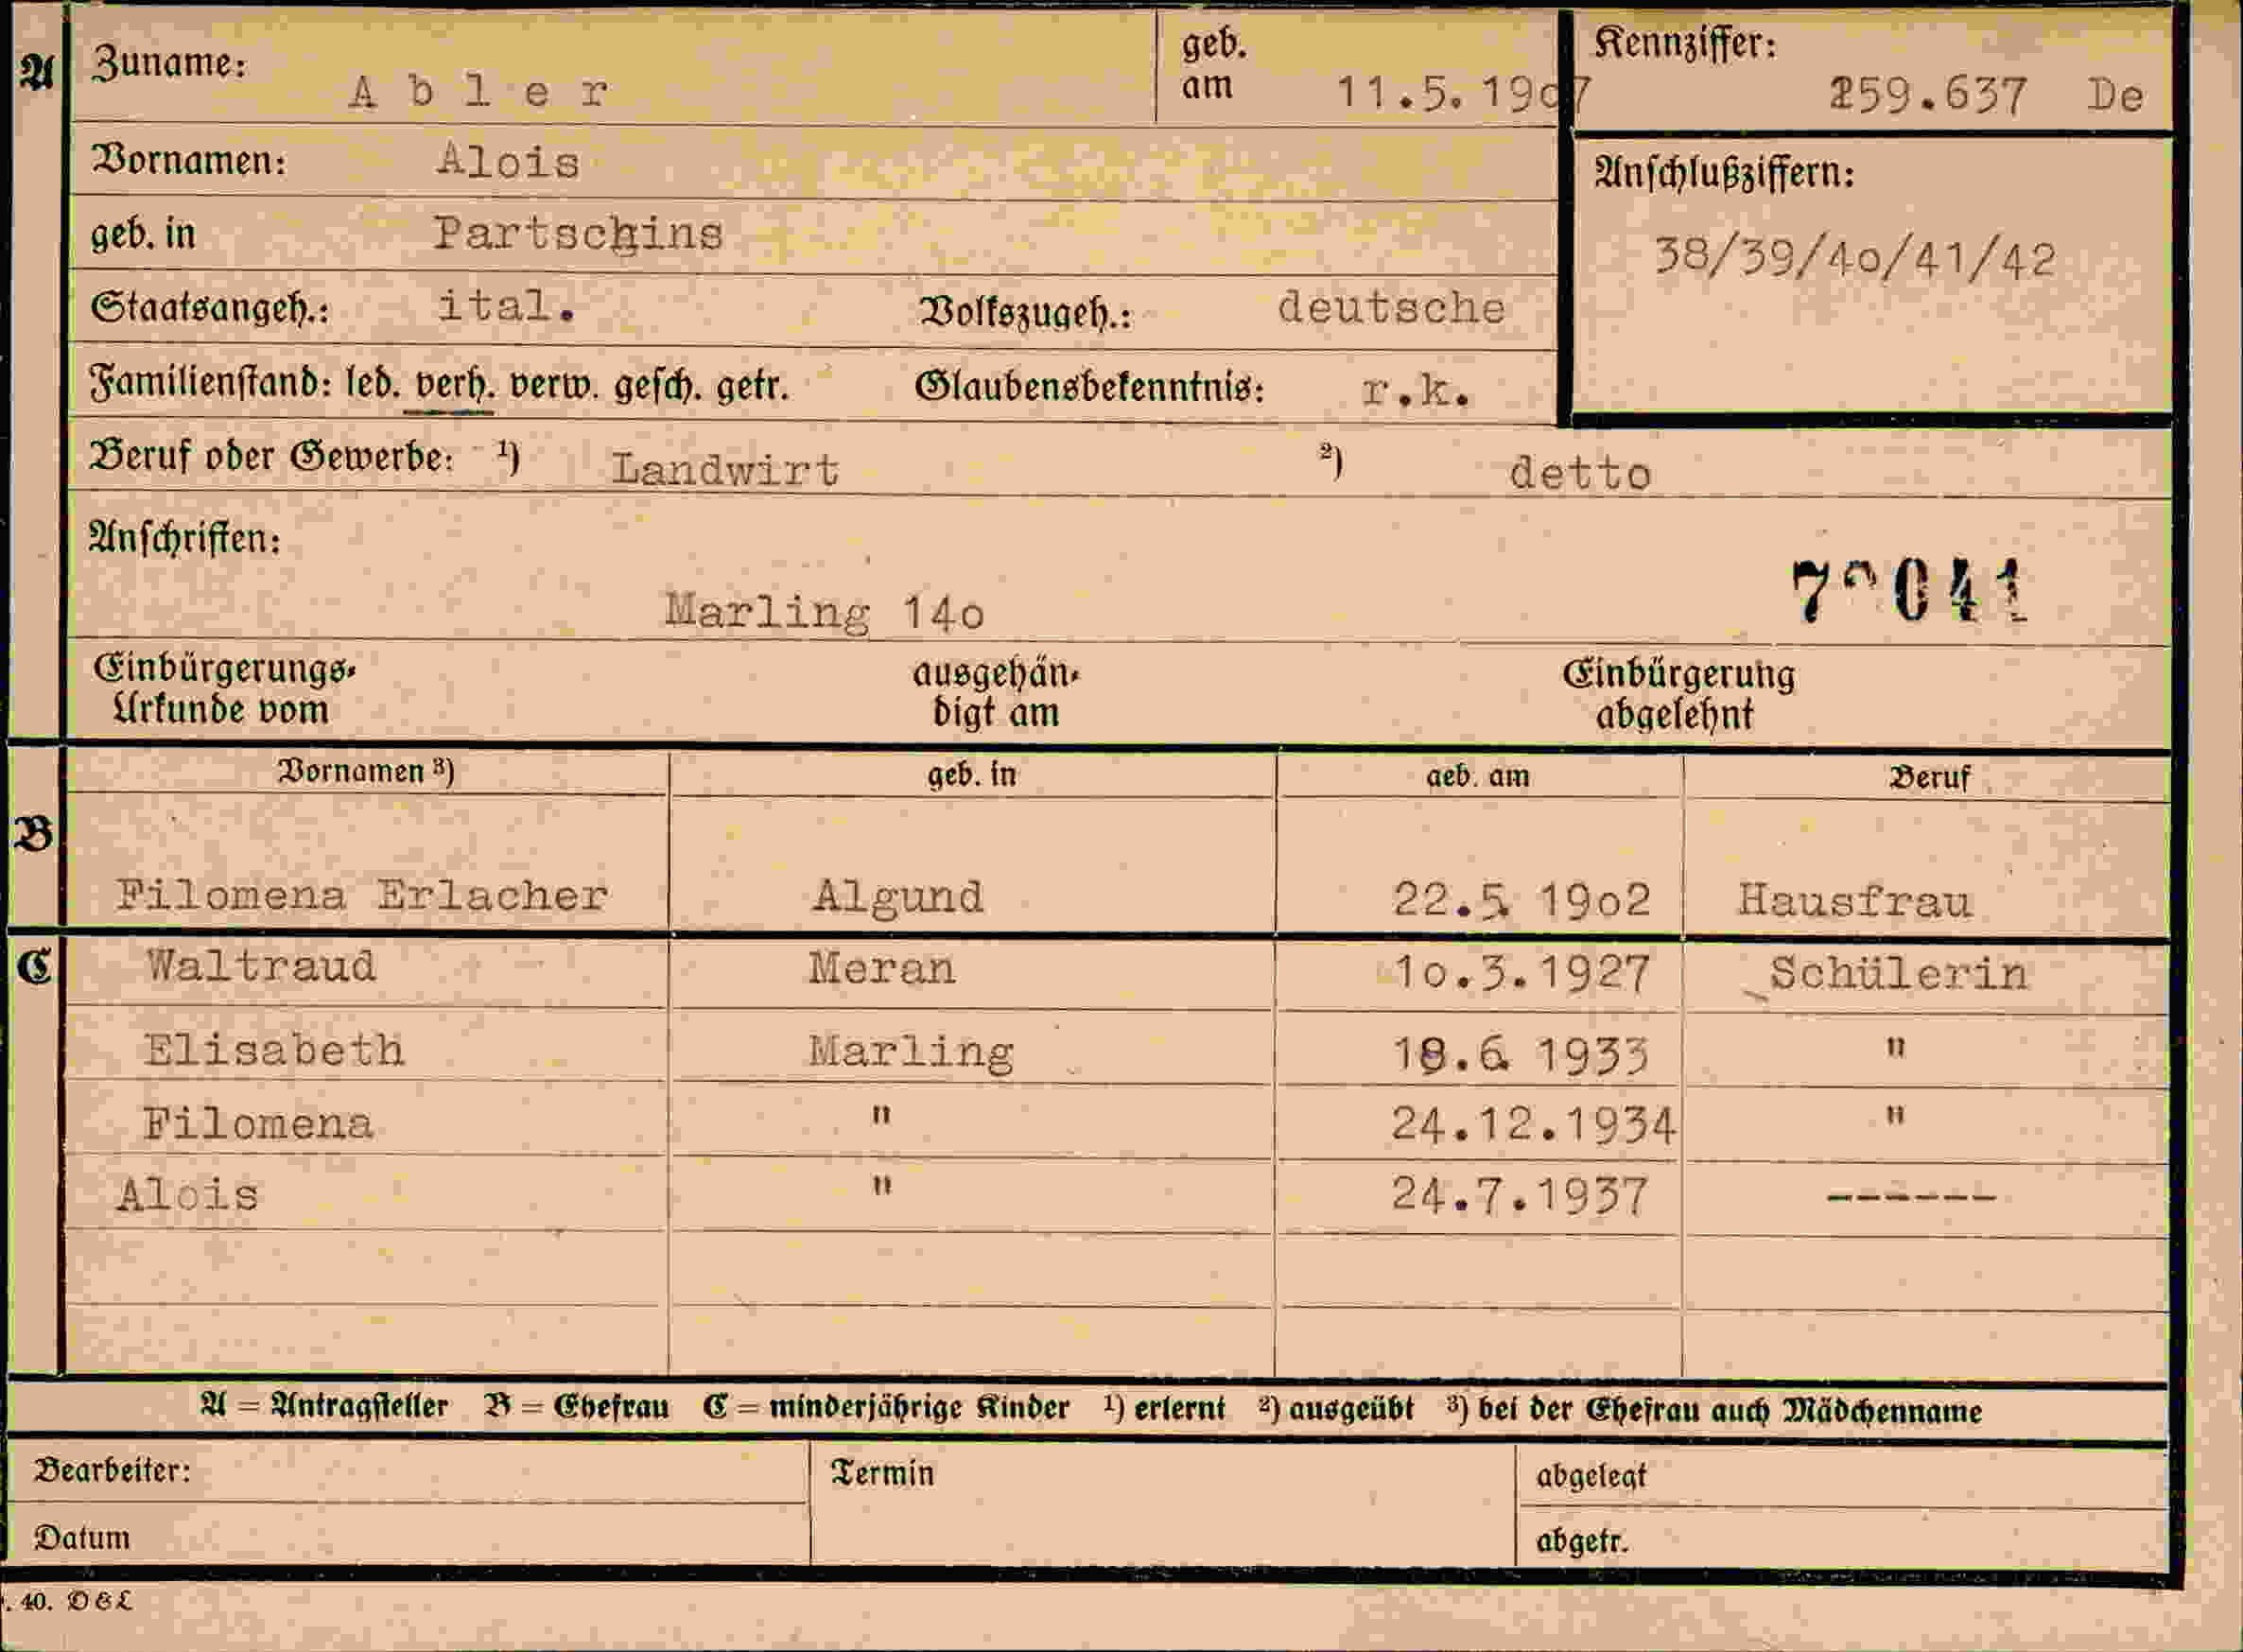 A Zuname: Abler geb. am 11.5.1907 Kennziffer: 259.637 De
Vornamen: Alois Anschlußziffern:
geb. in Partschins 38/39/40/41/42
Staatsangeh.: ital. Volkszugeh.: deutsche
Familienstand: led. verh. verw. gesch. getr. Glaubensbekenntnis: r.k.
Beruf oder Gewerbe: 1) Landwirt 2) detto
Anschriften:
Marling 14o
Einbürgerungs-Urkunde vom ausgehändigt am Einbürgerung abgelehnt
B Vornamen 3) geb. in geb. am Beruf
Filomena Erlacher Algund 22.5 19o2 Hausfrau
C Waltraud Meran 1o.3.1927 Schülerin
Elisabeth Marling 18.6 1933 "
Filomena " 24.12.1934 "
Alois " 24.7.1937 ------
A = Antragsteller B = Ehefrau C = minderjährige Kinder 1) erlernt 2) ausgeübt 3) bei der Ehefrau auch Mädchenname
Bearbeiter: Termin abgelegt
Datum abgetr.
. 40. D&L